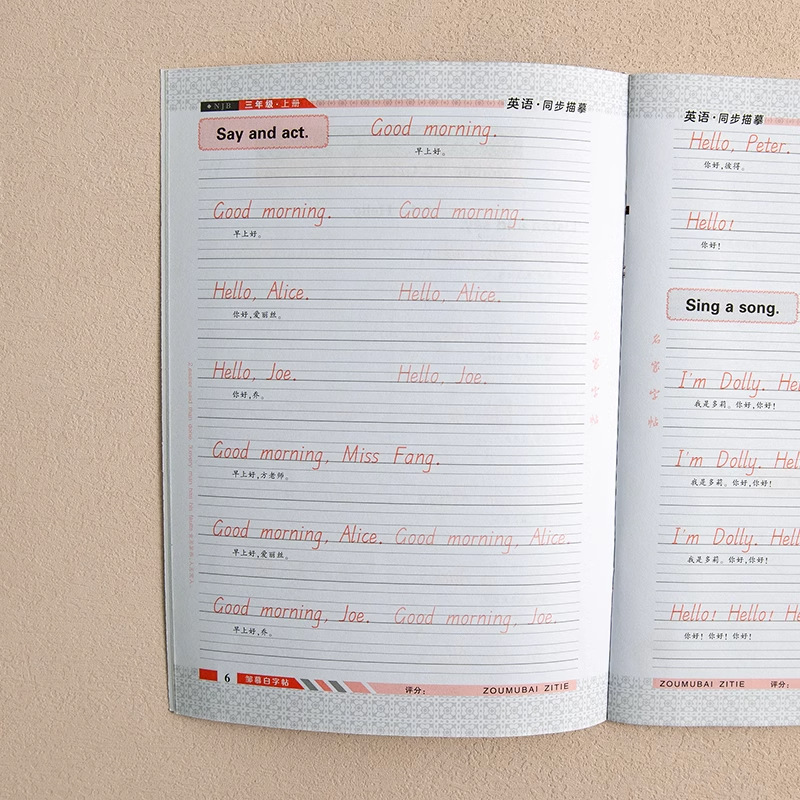 NJB 三年级·上册 英语·同步描摹
Say and act. Good morning.
早上好。
Good morning. Good morning.
早上好。
Hello, Alice. Hello, Alice.
你好,爱丽丝。
Hello, Joe. Hello, Joe.
你好,乔。
Good morning, Miss Fang.
早上好,方老师。
Good morning, Alice. Good morning, Alice.
早上好,爱丽丝。
Good morning, Joe. Good morning, Joe.
早上好,乔。
6 邹慕白字帖 评分: ZOUMUBAI ZITIE
英语·同步描摹
Hello, Peter.
你好,彼得。
Hello!
你好!
Sing a song.
名家字帖
I'm Dolly. Hel
我是多莉。你好,你好!
I'm Dolly. Hel
我是多莉。你好,你好!
I'm Dolly. Hell
我是多莉。你好,你好!
Hello! Hello! H
你好! 你好! 你好!
ZOUMUBAI ZITIE 评分: